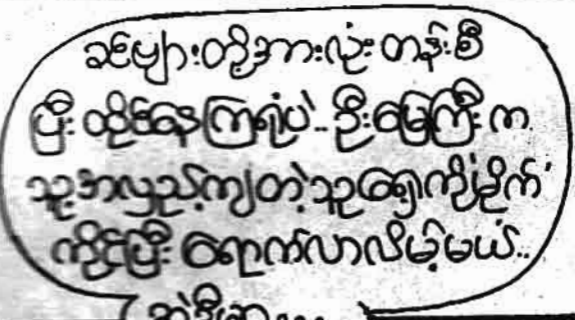 ခင်ဗျားတို့အားလုံး တန်းစီ
ပြီး ထိုင်နေကြရုံပဲ.. ဦးမြေကြီး က
သူ့အလှည့်ကျတဲ့သူရှေ့ကို
ကိုင်ပြီး ရောက်လာလိမ့်မယ်..